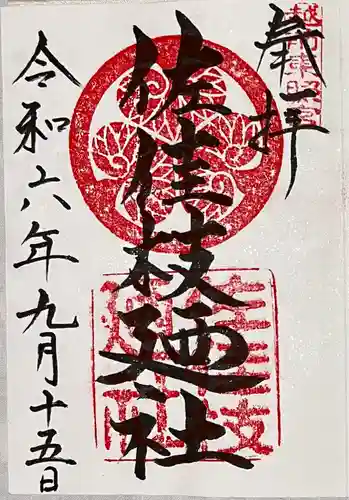 奉拝
越前東照宮
佐佳枝廼社
佐佳枝廼社
令和六年九月十五日